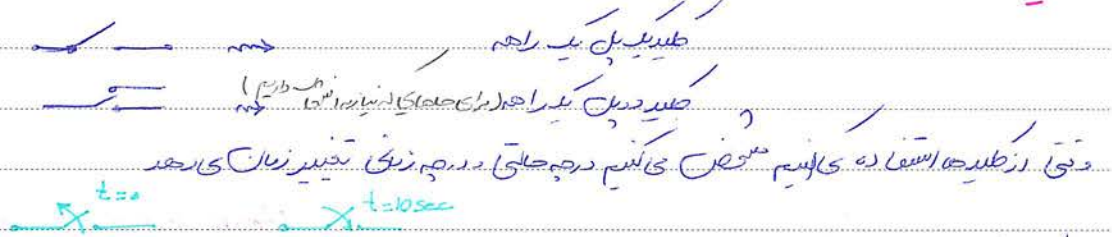 کلید یک پل یک راهه
کلید دو پل یک راهه (برای جاهای که نیاز به انتخاب داریم)
وقتی از کلیدها استفاده می‌کنیم مشخص می‌کنیم در چه حالتی و در چه زمانی تغییر زمان می‌دهد
t=0 t=10sec